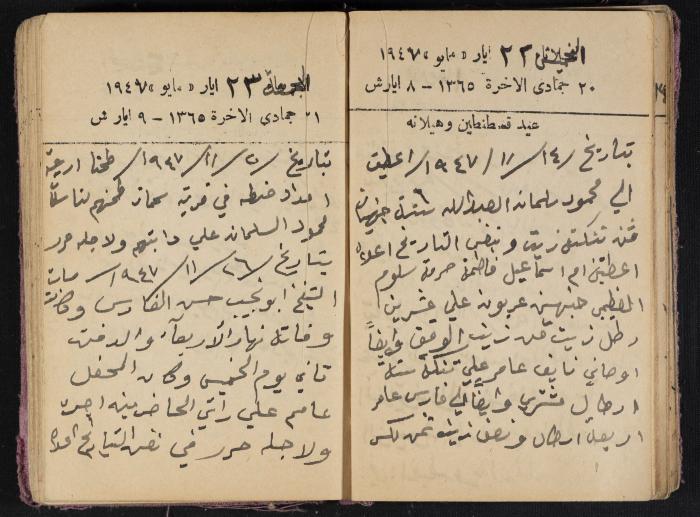 ٢٢ ايار « مايو » ١٩٤٧
٢٠ جمادى الآخرة ١٣٦٥ - ٨ ايار ش
عيد قسطنطين وهيلانه
بتاريخ /١٤/ ١١/ ١٩٤٧/ اعطيت
الى محمود سلمان العبدالله ستة
تنكة زيت وبنفس التاريخ اعلاه
اعطتني ام اسماعيل فاطمة حرمة سلوم
عربون علي عشرين
رطل زيت من زيت الوقف وايضاً
اوصاني نايف عامر علي تنكة ستة
ارطال مشتري وايضا لي فارس عامر
اربعة ارطال ونصف زيت ثمن
الجمعة ٢٣ ايار « مايو » ١٩٤٧
٢١ جمادى الآخرة ١٣٦٥ - ٩ ايار ش
بتاريخ /٢٠/ ١١/ ١٩٤٧/ طحنا اربعة
امداد حنطه في قرية طحنهم لنا
محمود السلمان علي دابتهم ولاجله حرر
بتاريخ /٢٦/ ١١/ ١٩٤٧/ مات
الشيخ ابو نجيب حسن الفارس وكانت
وفاته نهار الاربعاء والدفن
ثاني يوم الخميس وكان المحفل
علي رأي الحاضرين
ولاجله حرر في نفس التاريخ اعلاه